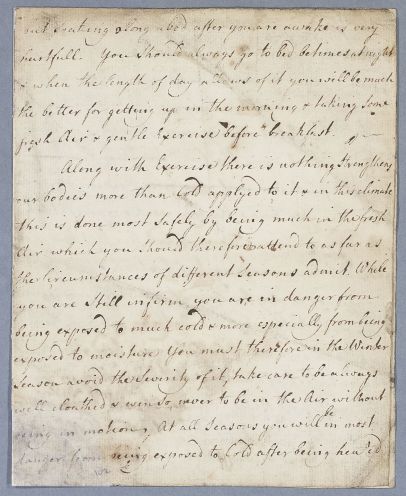 but beating along abed after you are awake is very
hurtfull. You should always go to bed betimes at night
& when the length of day allows of it you will be much
the better for getting up in the morning & taking some
fresh Air & gentle Exercise before breakfast.
Along with Exercise there is nothing strengthens
our bodies more than Cold applyed to it & in this climate
this is done most safely by being much in the fresh
Air which you should therefore attend to as far as
the Circumstances of different Seasons admit. While
you are still infirm you are in danger from
being exposed to much cold & more especially from being
exposed to moisture You must therefore in the Winter
Season avoid the Severity of it, take care to be always
well cloathed & even so never to be in the Air without
being in motion, At all Seasons you will be in most
danger from being exposed to Cold after being heated